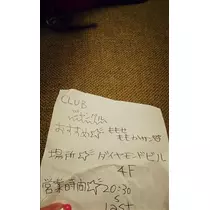 CLUB
おすすめ☆ ももせ
場所☆ ダイヤモンドビル
4F
営業時間☆ 20:30
〜
last